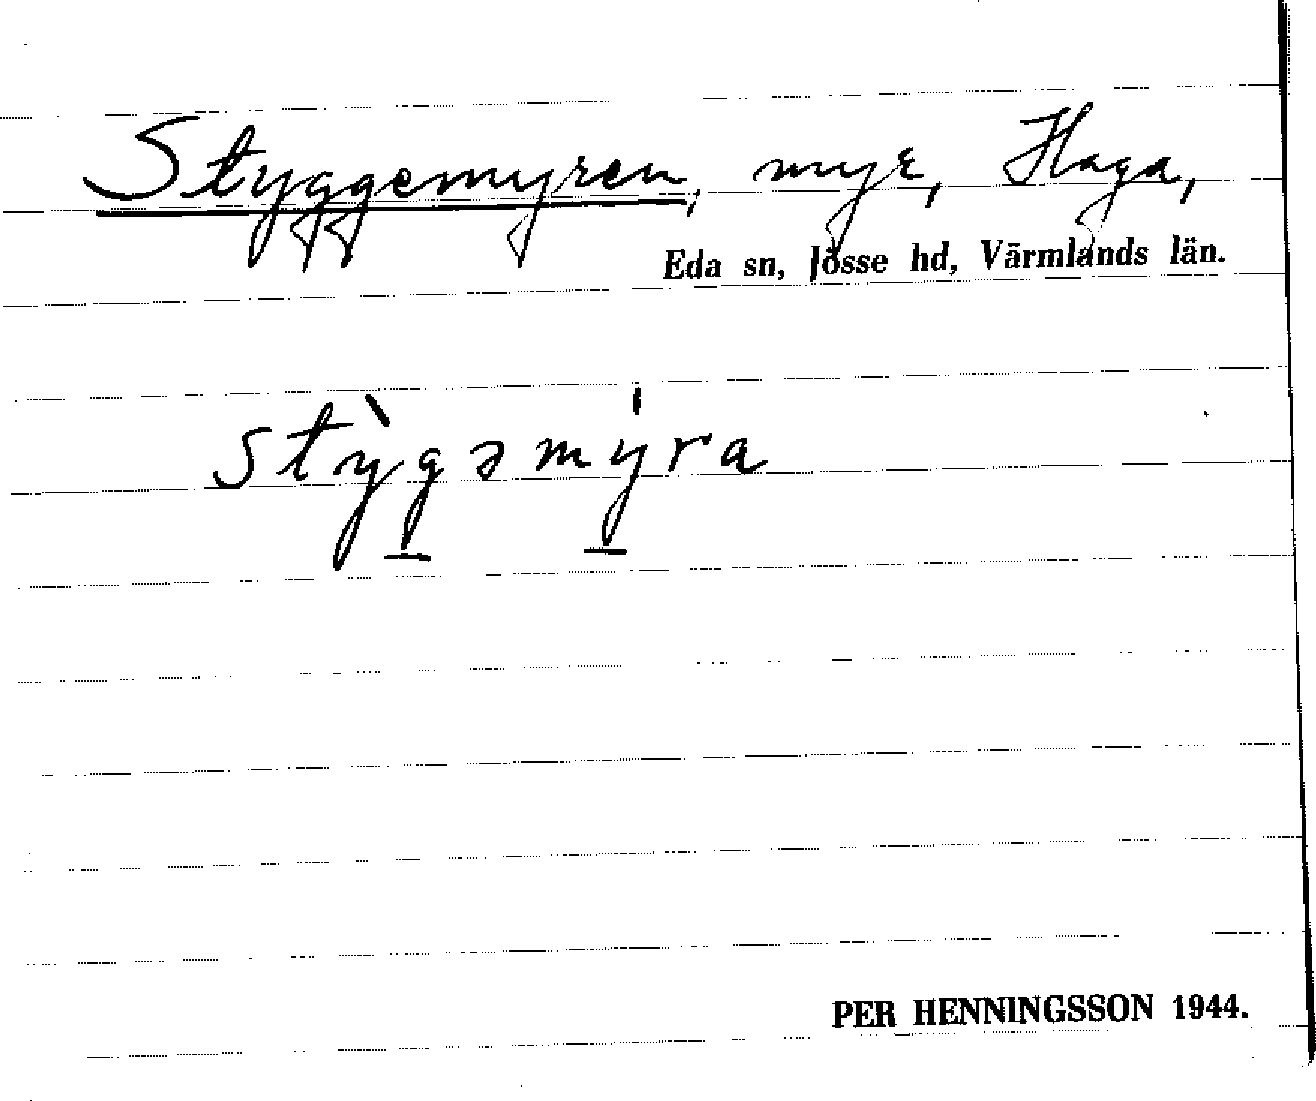 Styggemyren, myr, Haga,
Eda sn, Jösse hd, Värmlands län.
stỳgəmýra
PER HENNINGSSON 1944.